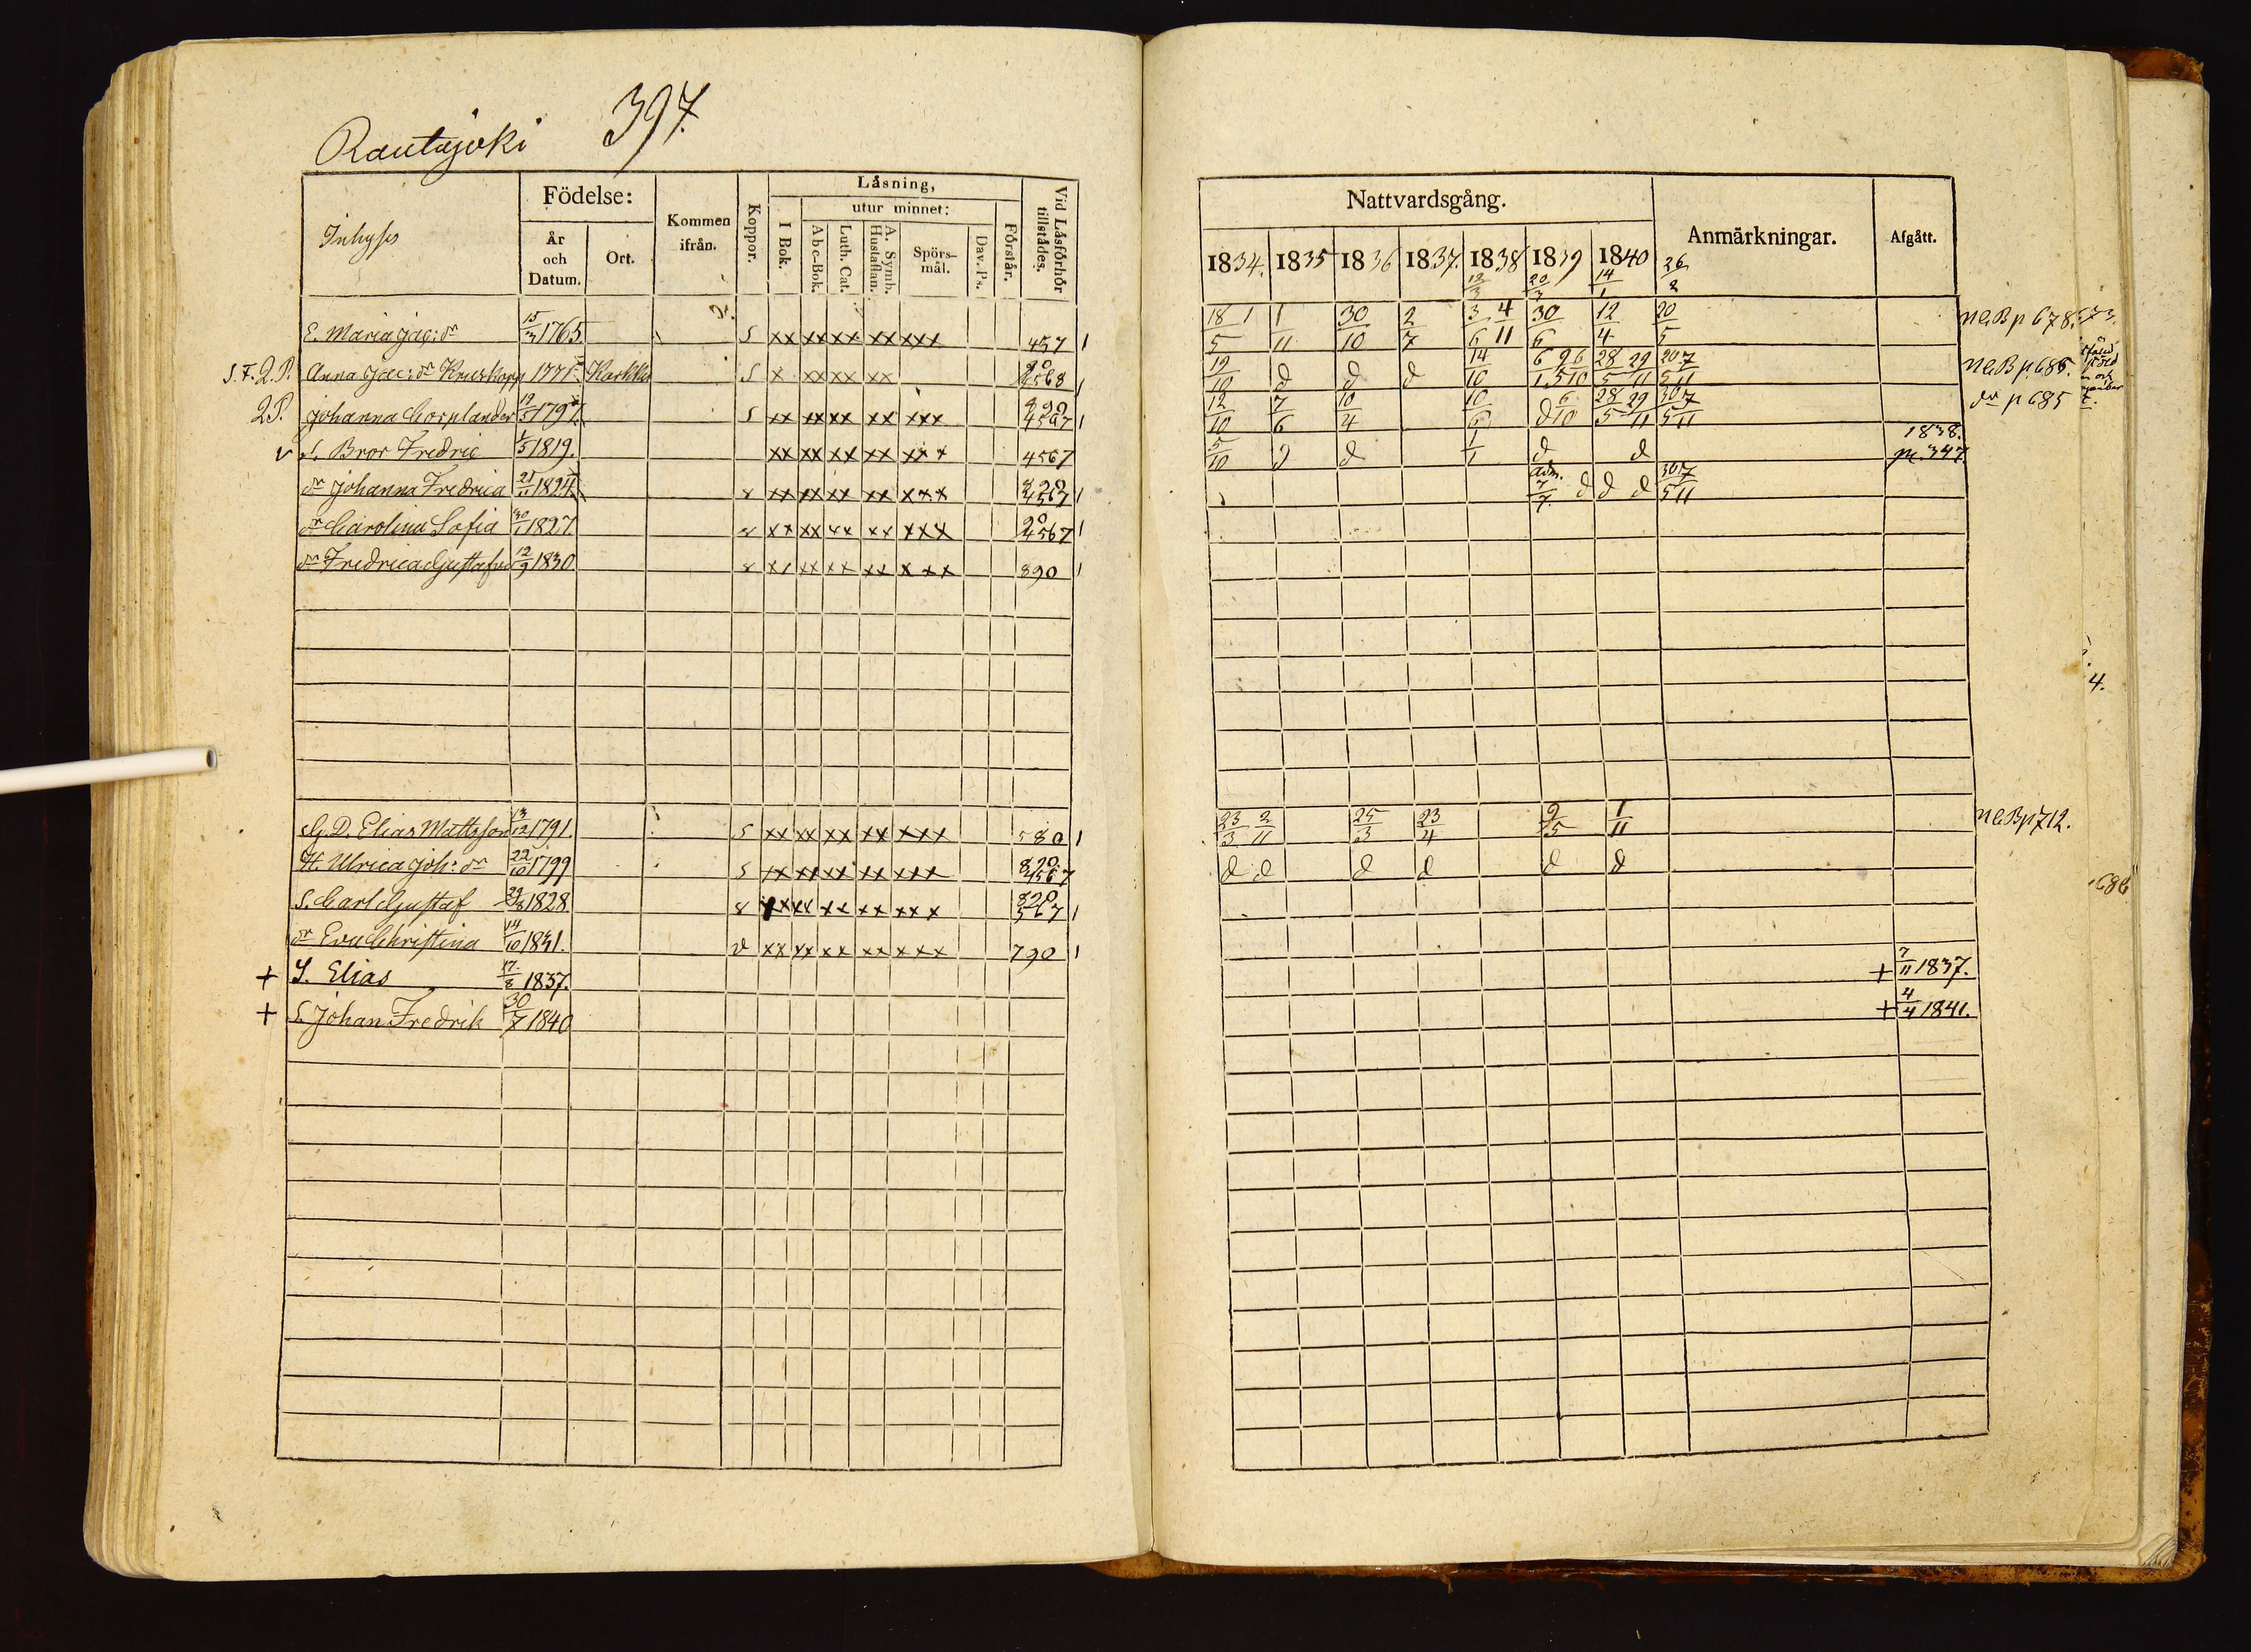 Rautajoki 397.
Inhyses
Födelse:
År och Datum.
Ort.
Kommen ifrån.
Koppor.
Läsning,
I Bok.
utur minnet:
Abc-Bok.
Luth. Cat.
A. Symb. Hustaflan.
Spörs-mål.
Dav. Ps.
Förstår.
Vid Läsförhör tillstädes.
Nattvardsgång.
1834. 1835 1836 1837. 1838 1839 1840
12/3 20/3 14/1 26/8
Anmärkningar.
Afgått.
E. Maria Jac: dr 15/3 1765 S xx xx xx xx xxx 457 1 18/5 1 1/11 30/10 2/7 3/6 4/11 30/6 12/4 20/5 NCB p 678.
S. F. Q. P. Anna Jac: dr 1771 Karkku S x xx xx xx 4568 19/10 d d d 14/10 28/5 29/11 NCB p. 685.
Q P. Johanna Corplander 19/5 1797 S xx xx xx xx xxx 12/10 7/6 10/4 10/6 28/5 29/11 30/5 7/11 dr p 685
v S. Bror Fredric 1/5 1819. xx xx xx xx xxx 4567 5/10 d d 1/1 d d 1838. p. 347.
dr Johanna Fredrica 21/11 1824 xx xx xx xx xxx 4567 1 adm. 7/7 d d d 30/5 7/11
dr Carolina Sofia 30/1 1827. xx xx xx xx xxx 4567 1
dr Fredrica Gustafva 12/9 1830 xx xx xx xx xxx 890 1
G. D. Elias Mattsson 13/12 1791. S xx xx xx xx xxx 580 1 23/3 2/11 25/3 23/4 9/5 1/11 NCB p 712.
H. Ulrica Joh: dr 22/10 1799 S xx xx xx xx xxx d d d d d d
S. Carl Gustaf 29/8 1828. xx xx xx xx xxx 567 1
dr Eva Christina 14/10 1831. v xx xx xx xx xxx 790 1
+ S. Elias 17/8 1837. + 7/11 1837.
+ S. Johan Fredrik 30/7 1840 + 4/4 1841.
4.
686